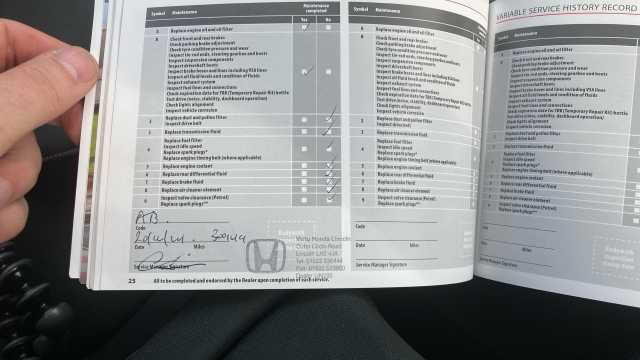 Symbol Maintenance Maintenance completed
Yes No
Replace engine oil and oil filter
Check front and rear brakes
Check parking brake adjustment
Check tyre condition pressure and wear
Inspect tie rod ends, steering gearbox and boots
Inspect suspension components
Inspect driveshaft boots
Inspect brake hoses and lines including VSA lines
Inspect all fluid levels and condition of fluids
Inspect exhaust system
Inspect fuel lines and connections
Check expiration date for TRK (Temporary Repair Kit) bottle
Test drive (noise, stability, dashboard operation)
Check lights alignment
Inspect vehicle corrosion
2 Replace dust and pollen filter
Inspect drive belt
3 Replace transmission fluid
4 Replace fuel filter
Inspect idle speed
Replace spark plugs*
Replace engine timing belt (where applicable)
5 Replace engine coolant
6 Replace rear differential fluid
7 Replace brake fluid
8 Replace air cleaner element
9 Inspect valve clearance (Petrol)
Replace spark plug***
AB.
Code
Date Miles
Service Manager Signature
Vertu Honda Lincoln
Outer Circle Road
25 All to be completed and endorsed by the Dealer upon completion of each service.
Symbol Maintenance
Replace engine oil and oil filter
Check front and rear brakes
Check parking brake adjustment
Check tyre condition pressure and wear
Inspect tie rod ends, steering gearbox and boots
Inspect suspension components
Inspect driveshaft boots
Inspect all fluid levels and condition of fluids
Inspect exhaust system
Inspect fuel lines and connections
Check expiration date for TRK (Temporary Repair Kit) bottle
Test drive (noise, stability, dashboard operation)
Check lights alignment
Inspect vehicle corrosion
Replace dust and pollen filter
Inspect drive belt
Replace transmission fluid
Replace fuel filter
Inspect idle speed
Replace spark plugs*
Replace engine timing belt (where applicable)
Replace engine coolant
Replace rear differential fluid
Replace brake fluid
Replace air cleaner element
Inspect valve clearance (Petrol)
Replace spark plug***
Code
Date Miles
Service Manager Signature
VARIABLE SERVICE HISTORY RECORD
Symbol Maintenance
Replace engine oil and oil filter
Check front and rear brakes
Check parking brake adjustment
Check tyre condition pressure and wear
Inspect suspension components
Inspect driveshaft boots
Inspect exhaust system
Inspect fuel lines and connections
Check lights alignment
Inspect vehicle corrosion
Replace dust and pollen filter
Inspect drive belt
Replace transmission fluid
Replace fuel filter
Inspect idle speed
Replace spark plugs*
Replace engine timing belt (where applicable)
Replace engine coolant
Replace rear differential fluid
Replace brake fluid
Replace air cleaner element
Inspect valve clearance (Petrol)
Replace spark plug***
Code
Date
Service Manager Signature